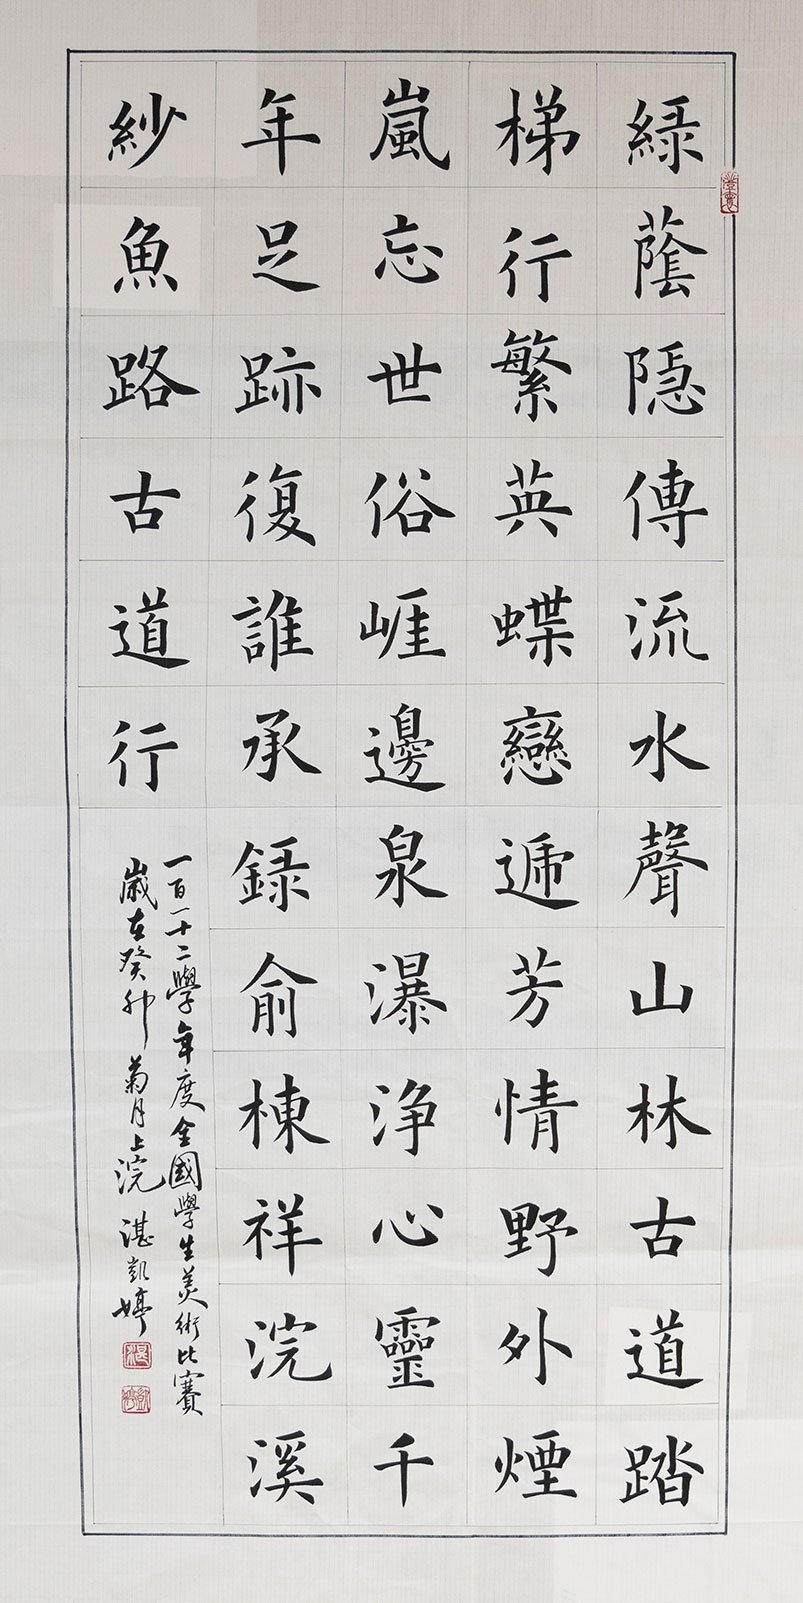 綠蔭隱傳流水聲山林古道踏
梯行繁英蝶戀遞芳情野外煙
嵐忘世俗崕邊泉瀑浄心靈千
年足跡復誰承錄俞棟祥浣溪
紗魚路古道行
一百一十二學年度全國學生美術比賽
歲在癸卯菊月上浣 湛凱婷